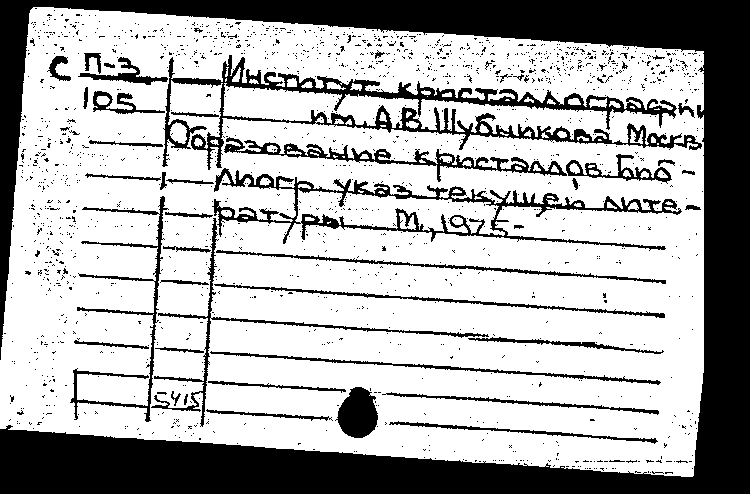 С П-3 Институт кристаллографии
105 им. А.В. Шубникова. Москв
Образование кристаллов. Биб-
лиогр. указ. текущей лите-
ратуры. М., 1975-
5415